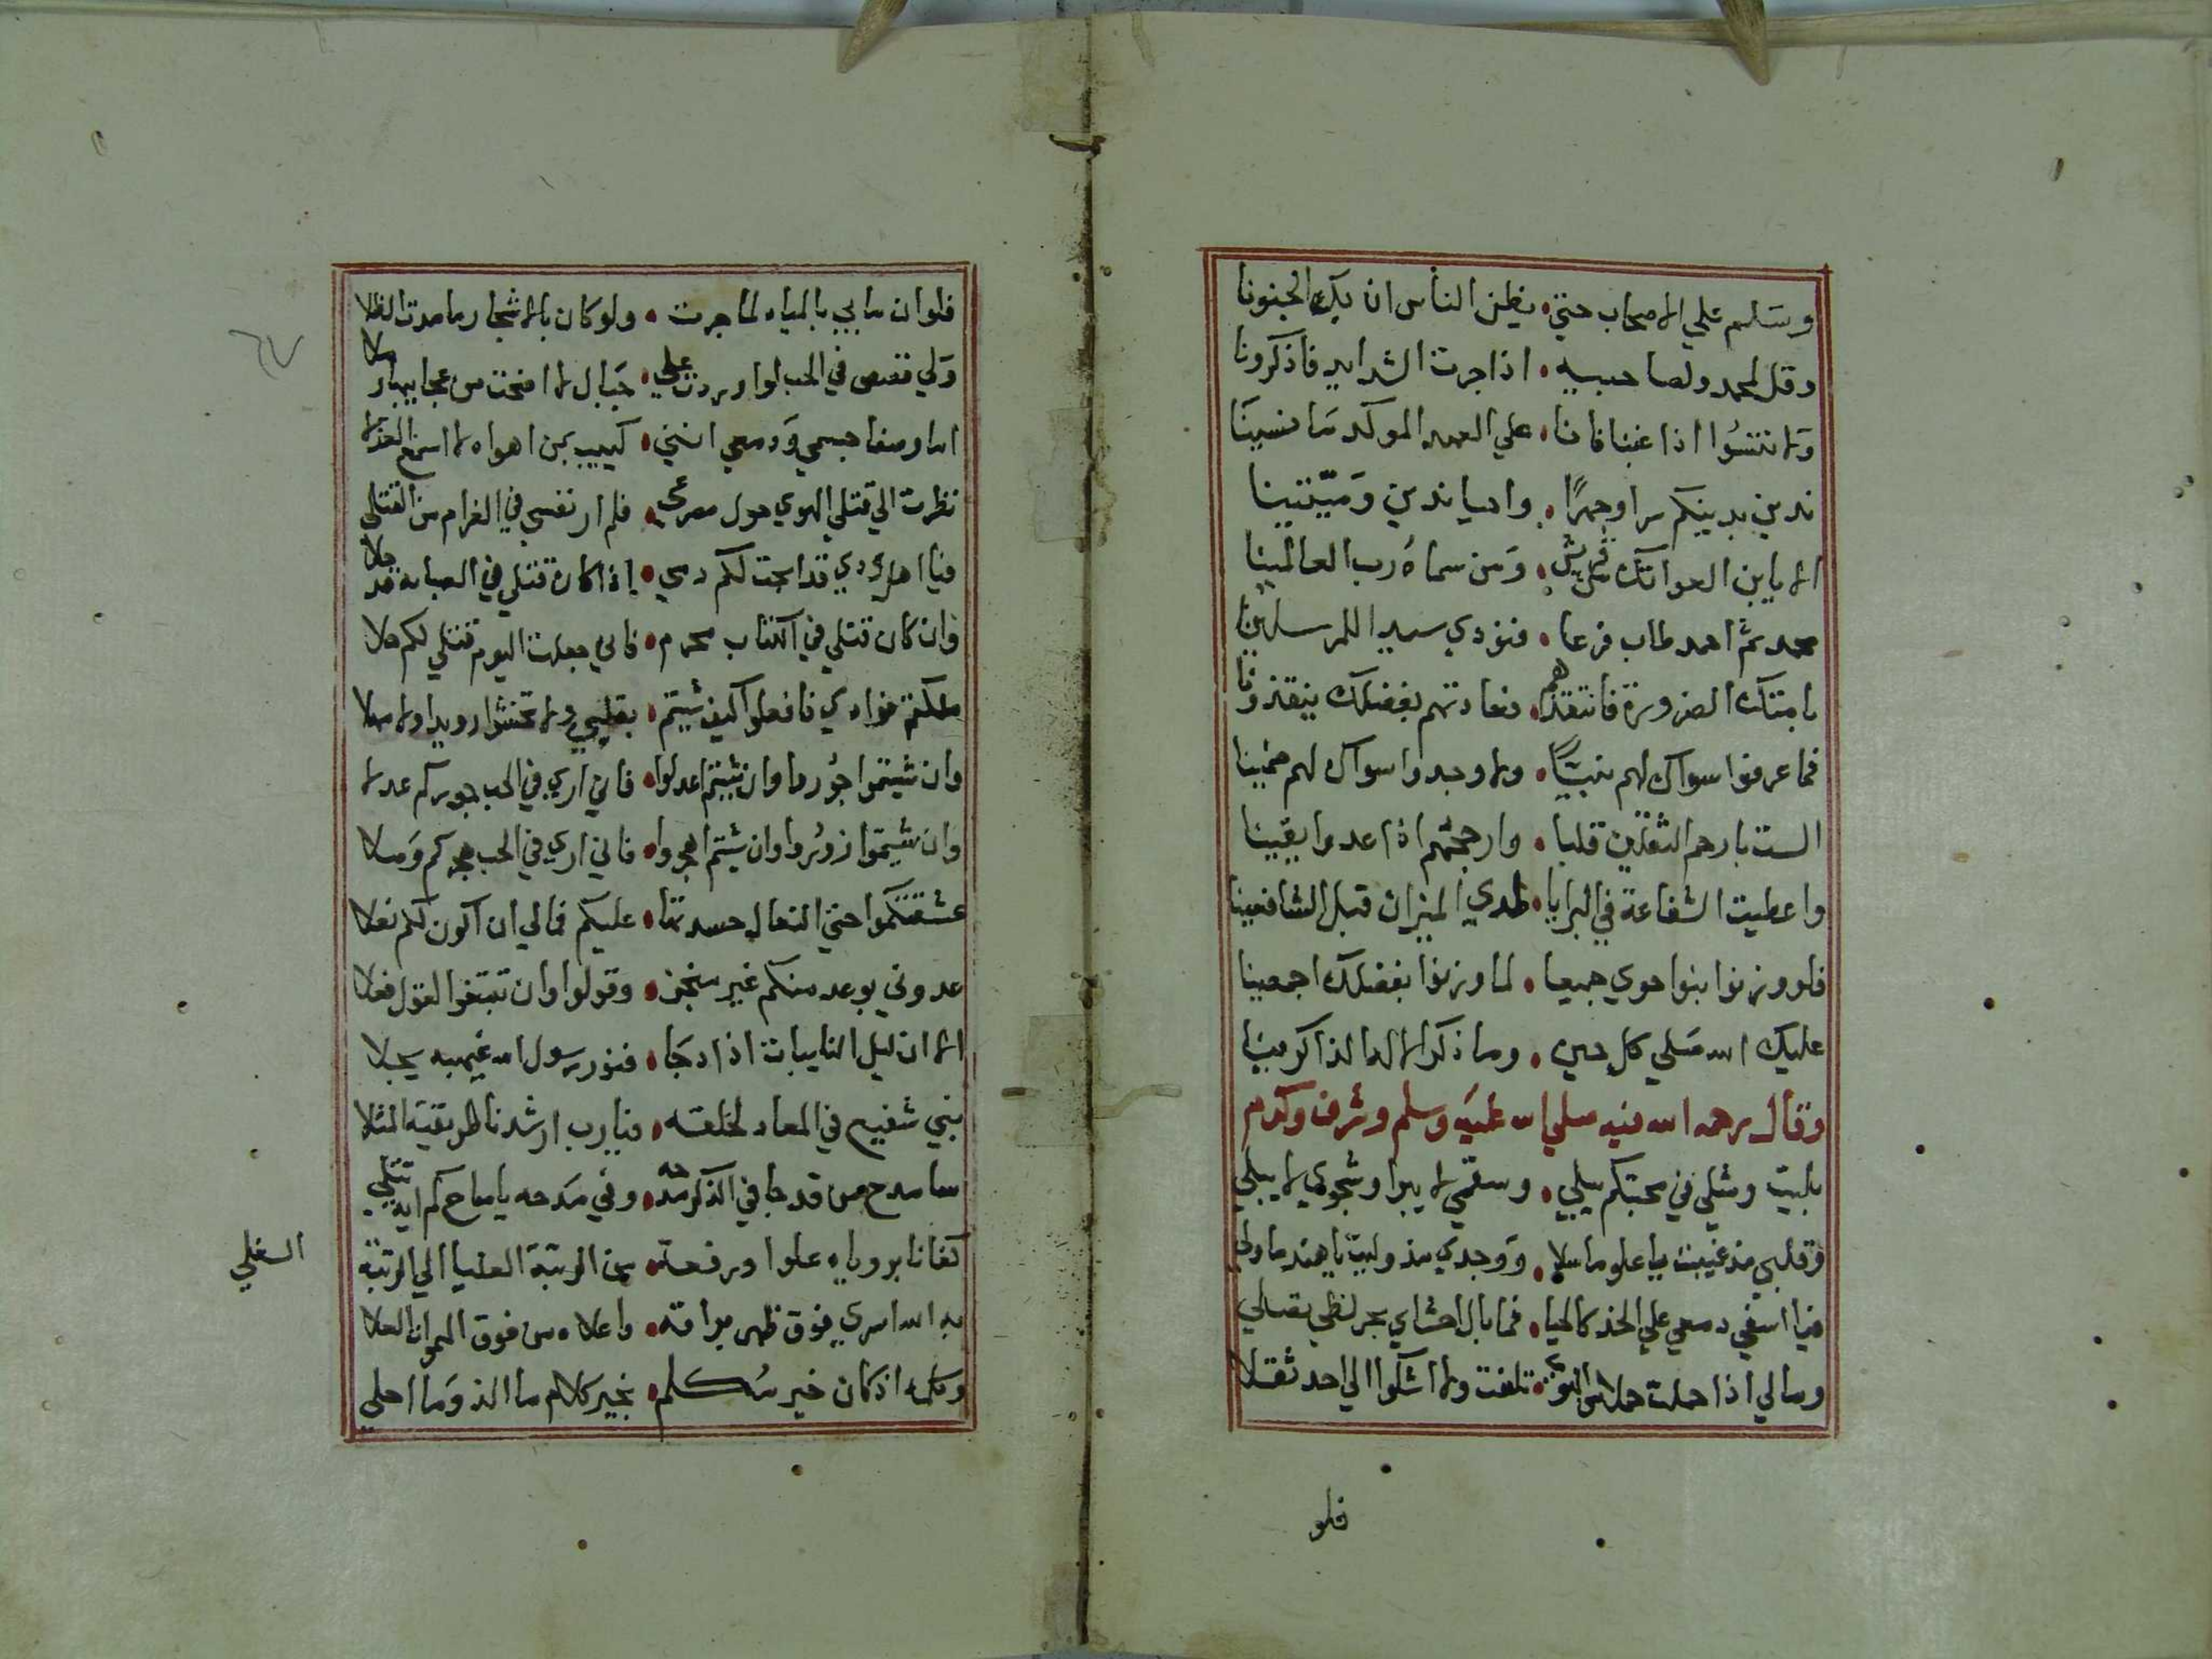 وسلم علي الاصحاب حتي • يظن الناس ان بك الجنونا
وقل لمحمد ولصاحبيه • اذا جرت الشدايد فاذكرونا
ولا تنسوا اذا غبنا فانا • علي العهد الموكد ما نسينا
ندين بدينكم سرا وجهرا • واحيا ندين وميتينا
الا يا ابن العواتك من قريش • ومن سماه رب العالمينا
محمد ثم احمد طاب فرعا • فنودي سيدا للمرسلينا
بامتك الضرورة فانتقذهم • فعادتهم بفضلك ينقذونا
فما عرفوا سواك لهم نبيا • ولا وجدوا سواك لهم
الست بارحم الثقلين قلبا • وارجحهم اذا عدوا يقينا
واعطيت الشفاعة في البرايا • لدي الميزان قبل الشافعينا
فلو وزنوا بنوا حوي جميعا • لما وزنوا بفضلك اجمعينا
عليك الله صلي كل حين • وما ذكر الاله الذاكرينا
وقال رحمه الله فيه صلي الله عليه وسلم وشرف وكرم
بليت ومثلي في محبتكم يبلي • وسقمي لا يبرا وشجوي لا يبلي
وقلبي مذ غيبت يا علو ما سلا • ووجدي مذ وليت يا هند ما ولي
فيا اسفي دمعي علي الخد كالحيا • فما بال احشاي بحر لظي يصلي
ومالي اذا حملت حملا من الهوي • تلفت ولا اشكوا الي احد ثقلا
فلو
فلو ان ما بي بالمياه لما جرت • ولو كان بالاشجار ما مدت الظلا
ولي قصص في الحب لو اوردت علي • جبال لاضحت من عجايبها رملا
اما وصفا جسمي ودمعي انني • كييب بمن اهواه لا اسمع العذلا
نظرت الي قتلي الهوي حول مصرعي • فلم ار نفسي في الغرام من القتلي
فيا اهل ودي قد ابحت لكم دمي • اذا كان قتلي في الصبابه قد حلا
وان كان قتلي في الكتاب محرم • فاني جعلت اليوم قتلي لكم حلا
ملكتم فوادي فافعلوا كيف شيتم • بقلبي ولا تخشوا رويدا ولا مهلا
وان شيتموا جورا وان شيتم اعدلوا • فاني اري في الحب جوركم عدلا
وان شيتموا زوروا وان شيتم اهجروا • فاني اري في الحب هجركم وصلا
عشقتكموا حتي النعال حسدتها • عليكم فمالي ان اكون لكم نعلا
عدوني بوعد منكم غير منجز • وقولوا وان تبتغوا القول فعلا
الا ان ليل النايبات اذا دجا • فنور رسول الله غيهبه يجلا
نبي شفيع في المعاد لخلقه • فيا رب ارشدنا طريقته المثلا
سامدح من قد جا في الذكر مدحه • وفي مدحه يا صاح كم ايه تتلي
كفانا بروياه علوا ورفعة • من الرتبة العليا الي الرتبة
السفلي
به الله اسري فوق ظهر براقه • واعلاه من فوق السموات العلا
وكلمه اذ كان خير مكلم • بخير كلام ما الذ وما احلي